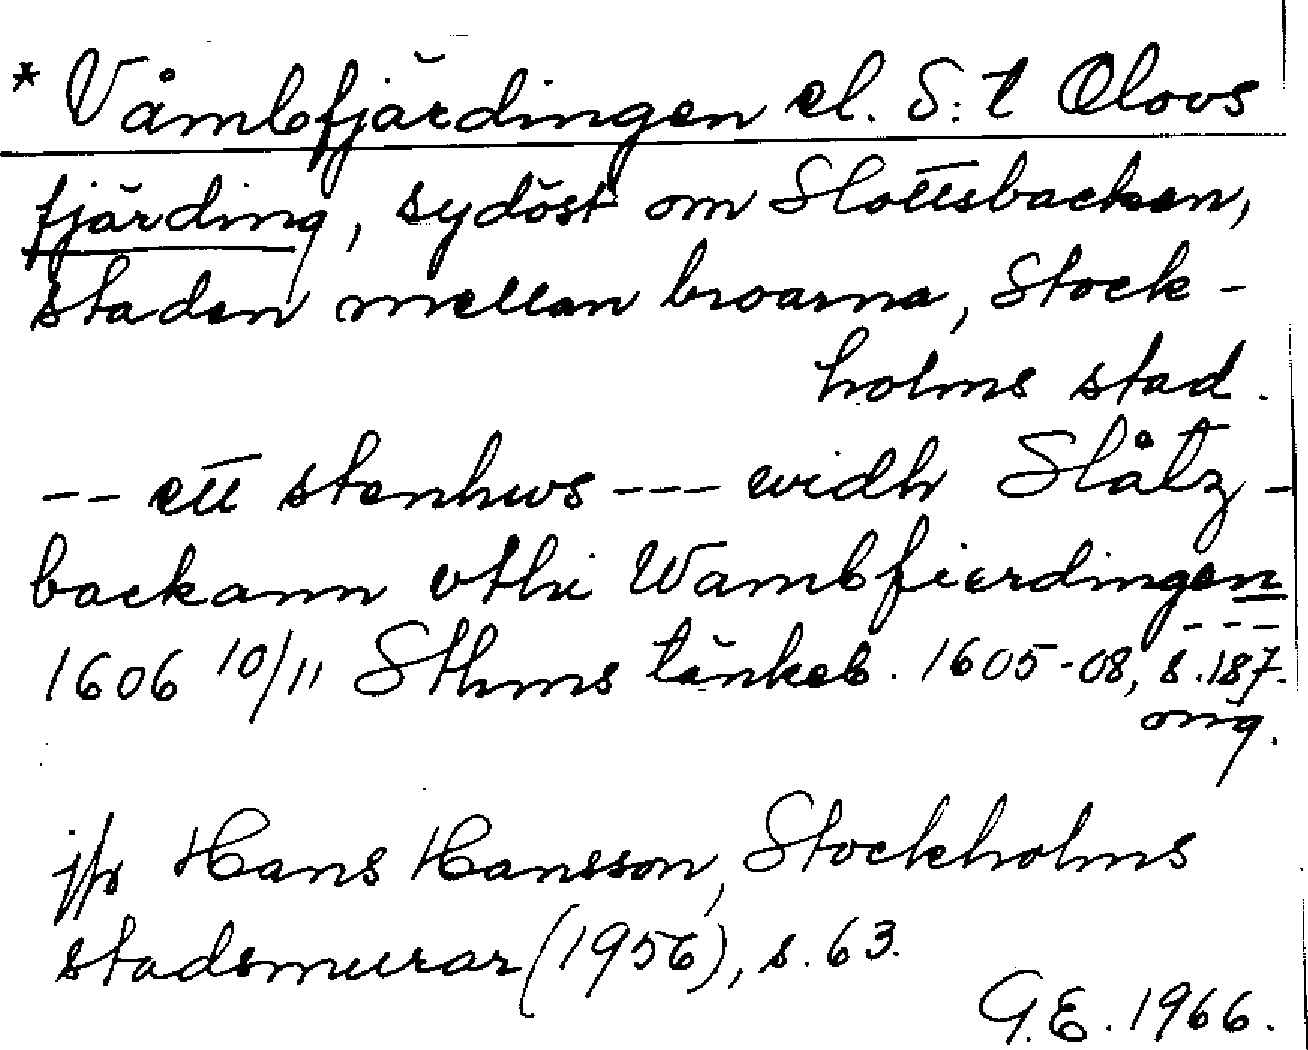 * Våmbfjärdingen el. S:t Olovs
fjärding, sydöst om Slottsbacken,
staden mellan broarna, Stock-
holms stad.
-- ett stenhws --- widh Slåtz-
backann vthi Wambfierdingen
---
1606 10/11 Sthms tänkeb. 1605-08, s. 187.
orig.
jfr Hans Hansson, Stockholms
stadsmurar (1956), s. 63.
G.E. 1966.